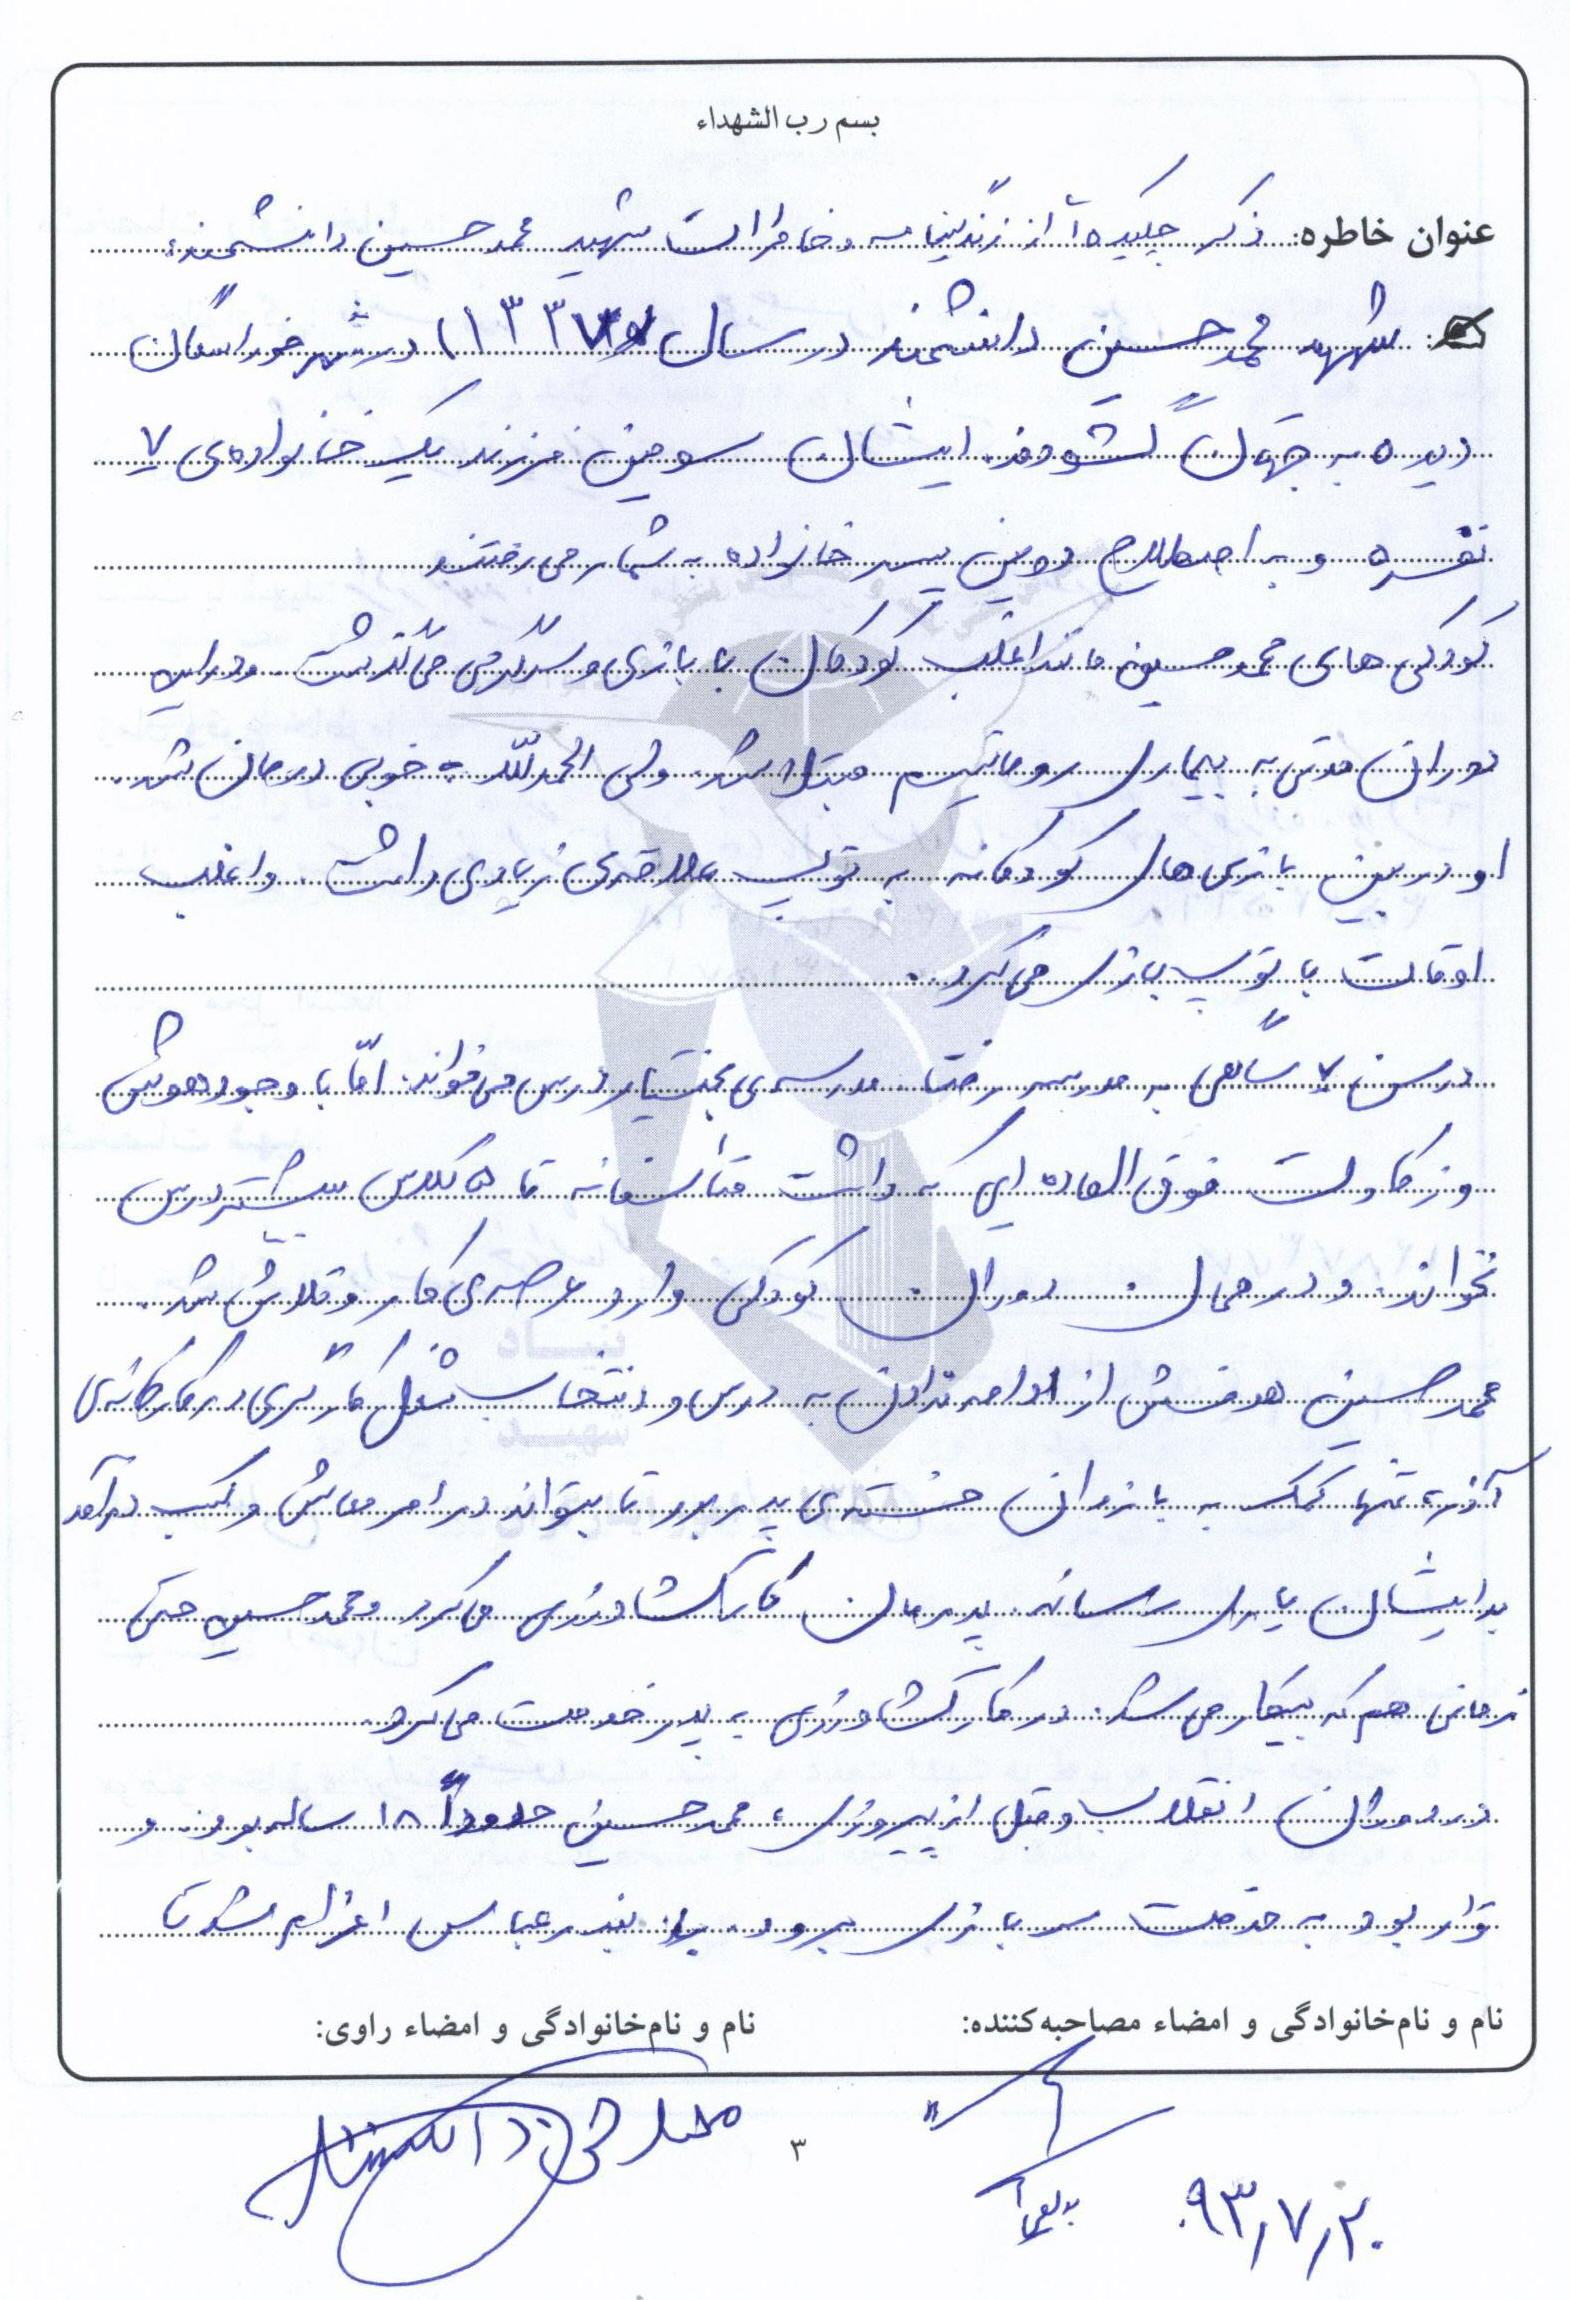 بسم رب الشهداء
عنوان خاطره: ذکر چکیده ای از زندگینامه و خاطرات شهید محمدحسین دانشمند:
شهید محمدحسین دانشمند در سال (۱۳۳۷) در شهر خوراسگان
دیده به جهان گشودند. ایشان سومین فرزند یک خانواده‌ی ۷
نفره و به اصطلاح دومین پسر خانواده به شمار می رفتند
کودکی های محمدحسین مانند اغلب کودکان با بازی و سرگرمی می گذشت. و در این
دوران مدتی به بیماری روماتیسم مبتلا شد. ولی الحمدلله به خوبی درمان شد.
او در بین بازی های کودکانه به توپ علاقه‌ی زیادی داشت. و اغلب
اوقات با توپ بازی می کرد.
در سن ۷ سالگی به مدرسه رفت. مدرسه‌ی بختیار درس می خواند. امّا با وجود هوش
و ذکاوت فوق العاده ای که داشت متأسفانه تا ۵ کلاس بیشتر درس
نخواند. و در همان دوران کودکی وارد عرصه‌ی کار و تلاش شد.
محمدحسین هدفش از ادامه ندادن به درس و انتخاب شغل کارگری در کارخانه‌ی
آذر، تنها کمک به بازوان خسته‌ی پدر بود تا بتواند در امر معاش و کسب درآمد
به ایشان یاری رساند. پدرمان کار کشاورزی می کرد و محمدحسین حتی
زمانی هم که بیکار می شد. در کار کشاورزی به پدر خدمت می کرد.
در دوران انقلاب و قبل از پیروزی، محمدحسین حدوداً ۱۸ ساله بود. و
قرار بود به خدمت سربازی برود. به بندرعباس اعزام شد تا
نام و نام‌خانوادگی و امضاء مصاحبه‌کننده: نام و نام‌خانوادگی و امضاء راوی:
۳
۹۳/۷/۲۰